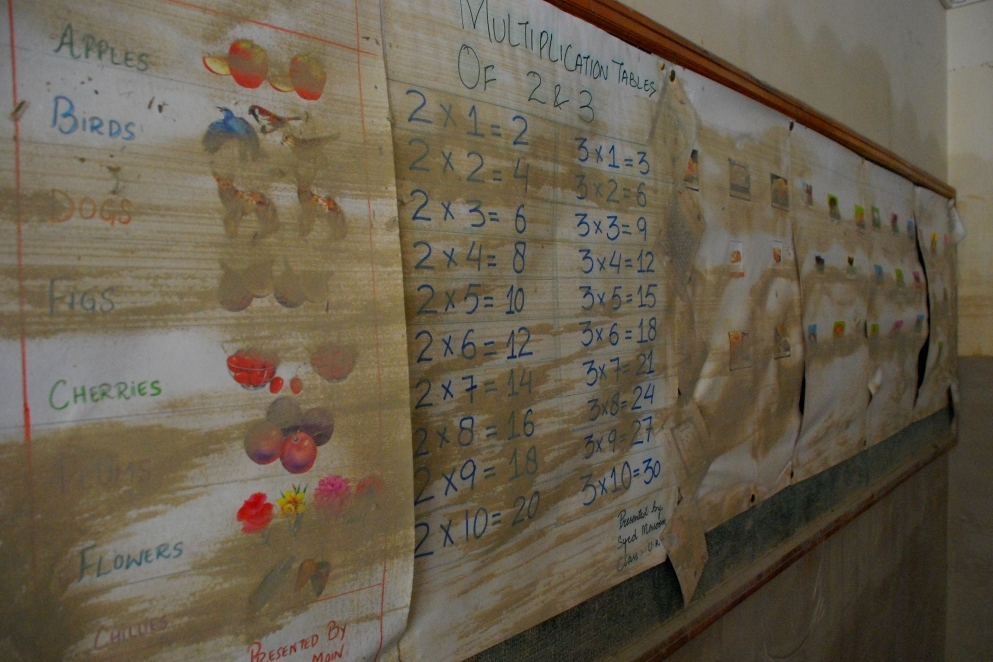 APPLES
BIRDS
DOGS
FIGS
CHERRIES
FLOWERS
CHILLIES
PRESENTED BY
MOIN.
MULTIPLICATION TABLES
OF 2 & 3
2 x 1 = 2
2 x 2 = 4
2 x 3 = 6
2 x 4 = 8
2 x 5 = 10
2 x 6 = 12
2 x 7 = 14
2 x 8 = 16
2 x 9 = 18
2 x 10 = 20
3 x 1 = 3
3 x 2 = 6
3 x 3 = 9
3 x 4 = 12
3 x 5 = 15
3 x 6 = 18
3 x 7 = 21
3 x 8 = 24
3 x 9 = 27
3 x 10 = 30
Presented by
Syed
Class